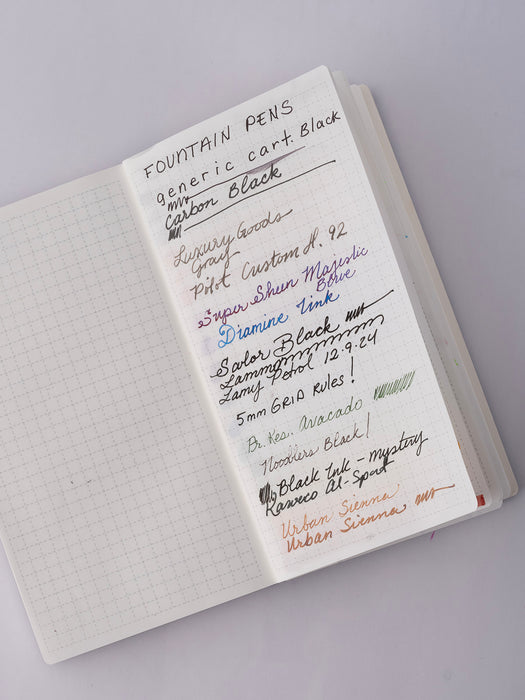 FOUNTAIN PENS
generic cart. Black
Carbon Black
Luxury Goods
Gray
Pilot Custom H. 92
Super Shun Majestic
Diamine Tink
Sailor Black
Lamy Petrol 12.9.24
5mm GRID RULES!
Br. Res. Avacado
Noodlers Black!
Black Ink - mystery
Kaweco Al-Sport
Urban Sienna
Urban Sienna